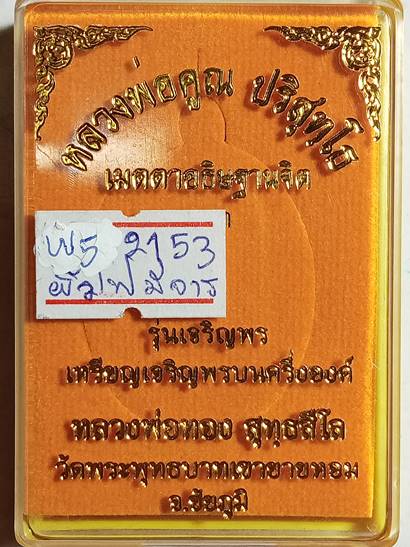 หลวงพ่อคูณ ปริสุทฺโธ
เมตตาอธิษฐานจิต
พ5 2153
พิมพ์มีจาร
รุ่นเจริญพร
เหรียญเจริญพรบนครึ่งองค์
หลวงพ่อทอง สุทธสีโล
วัดพระพุทธบาทเขายายหอม
จ.ชัยภูมิ